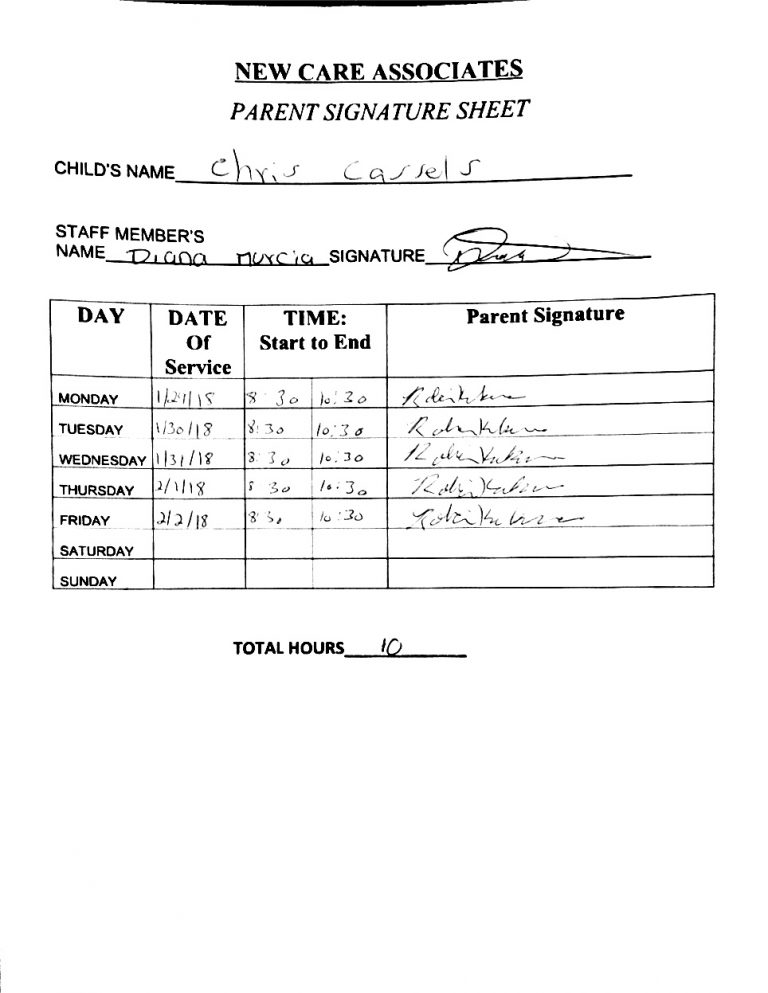 NEW CARE ASSOCIATES
PARENT SIGNATURE SHEET
CHILD'S NAME Chris Cassels
STAFF MEMBER'S
NAME Diana Murcia SIGNATURE
DAY DATE Of Service TIME: Start to End Parent Signature
MONDAY 8:30 10:30
TUESDAY 1/30/18 8:30 10:30
WEDNESDAY 1/31/18 8:30 10:30
THURSDAY 2/1/18 8:30 10:30
FRIDAY 2/2/18 8:30 10:30
SATURDAY
SUNDAY
TOTAL HOURS 10